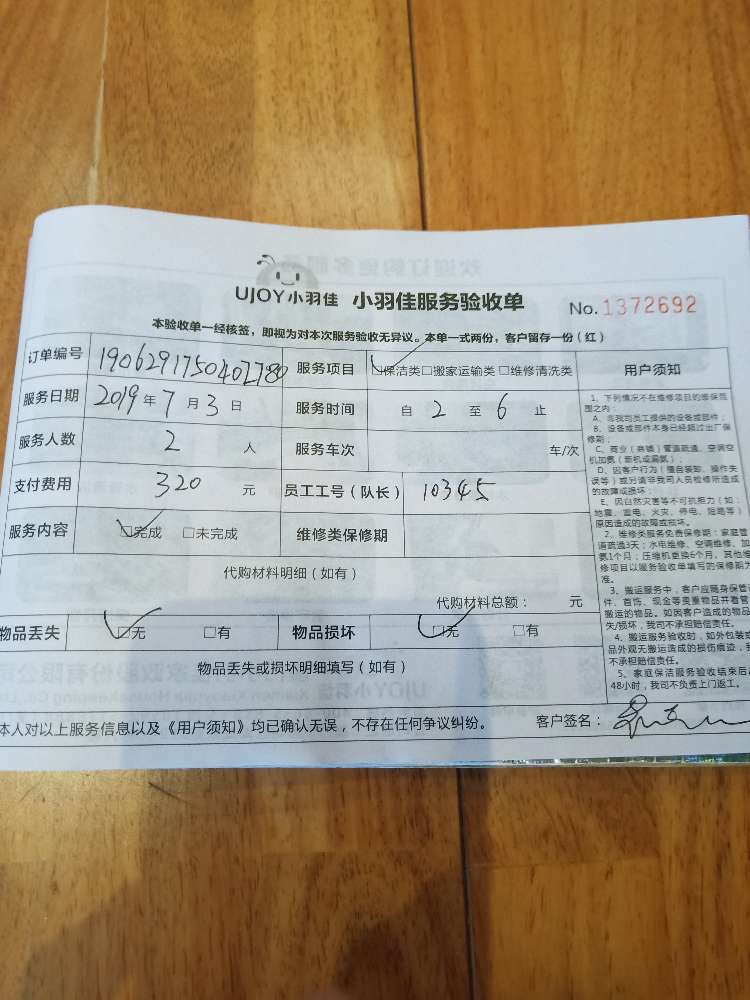 UJOY小羽佳 小羽佳服务验收单 No.1372692
本验收单一经核签，即视为对本次服务验收无异议。本单一式两份，客户留存一份（红）
订单编号 1906291750407780 服务项目 ☑保洁类□搬家运输类□维修清洗类
服务日期 2019年7月3日 服务时间 自2至6止
服务人数 2人 服务车次 车/次
支付费用 320元 员工工号（队长） 10345
服务内容 ☑完成 □未完成 维修类保修期
代购材料明细（如有）
代购材料总额： 元
物品丢失 ☑无 □有 物品损坏 ☑无 □有
物品丢失或损坏明细填写（如有）
本人对以上服务信息以及《用户须知》均已确认无误，不存在任何争议纠纷。 客户签名：
用户须知
1、下列情况不在维修项目的维保范
围之内：
A、非我司员工提供的设备或部件；
B、设备或部件本身已经超过出厂保
修期；
C、商业（商铺）管道疏通、空调空
机加氨（新机或漏氨）；
D、因客户行为（擅自装卸、操作失
误等）或另请非我司人员检修所造成
的故障或损坏；
E、因自然灾害等不可抗拒力（如：
地震、雷电、火灾、停电、短路等）
原因造成的故障或损坏。
2、维修类服务免费保修期：家庭管
道疏通3天；水电维修、空调维修、加
氨1个月；压缩机更换6个月。其他维
修项目以服务验收单填写的保修期为
准。
3、搬运服务中，客户应随身保管证
件、首饰、现金等贵重物品并看管
搬运的物品。如因客户造成的物品
失/损坏，我司不承担赔偿责任。
4、搬运服务验收时，如外包装或
品外观无搬运造成的损伤痕迹，我
不承担赔偿责任。
5、家庭保洁服务验收结束后
48小时，我司不负责上门返工。